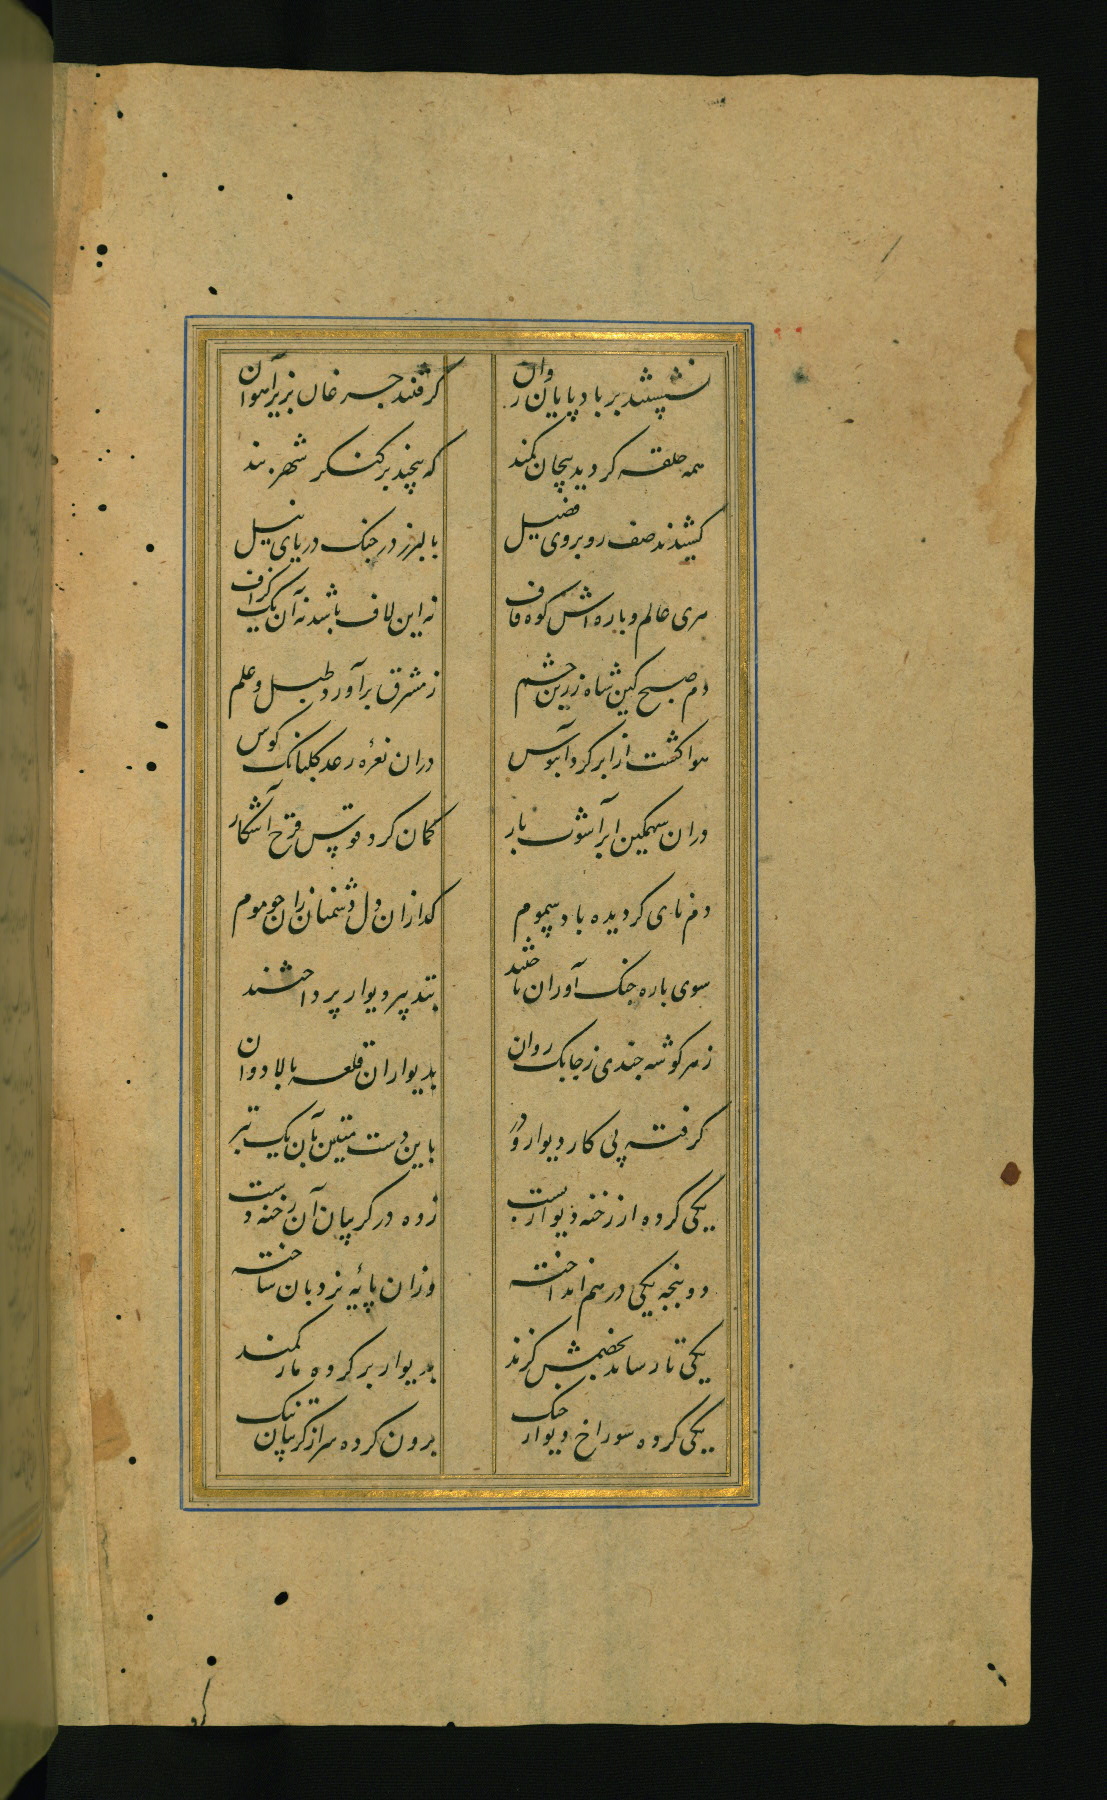 نشستند بر باد پایان روان گرفتند چرغان بزیر آهوان
همه حلقه کردید پیچان کمند که پیچند بر کنکر شهر بند
کشیدند صف روبروی فصیل بالبرز در جنک دریای نیل
سری عالم و باره اش کوه قاف نه این لاف باشد نه آن یک کزاف
دم صبح کین شاه زرین حشم ز مشرق برآورد طبل و علم
هوا کشت از ابر کرد آبنوس دران نعرهٔ رعد کلبانک کوس
دران سهمکین ابر آشوب بار کمان کرد قوس قزح آشکار
دم نای کردیده باد سموم کدازان دل دشمنان زان چو موم
سوی باره جنک آوران تاختند بتدبیر دیوار پرداختند
ز هر کوشه چندی ز چابک روان بدیوار آن قلعه بالا دوان
گرفته پی کار دیوار و در باین دست متین بآن یک تبر
یکی کرده از رخنه دیوار بست زده در کریبان آن رخنه دست
دو پنجه یکی درهم انداخته وزان پایهٔ نردبان ساخته
یکی تا رساند بخصمش کزند بدیوار بر کرده مار کمند
یکی کرده سوراخ دیوار جنک برون کرده سر از کریبان تنک
کرد